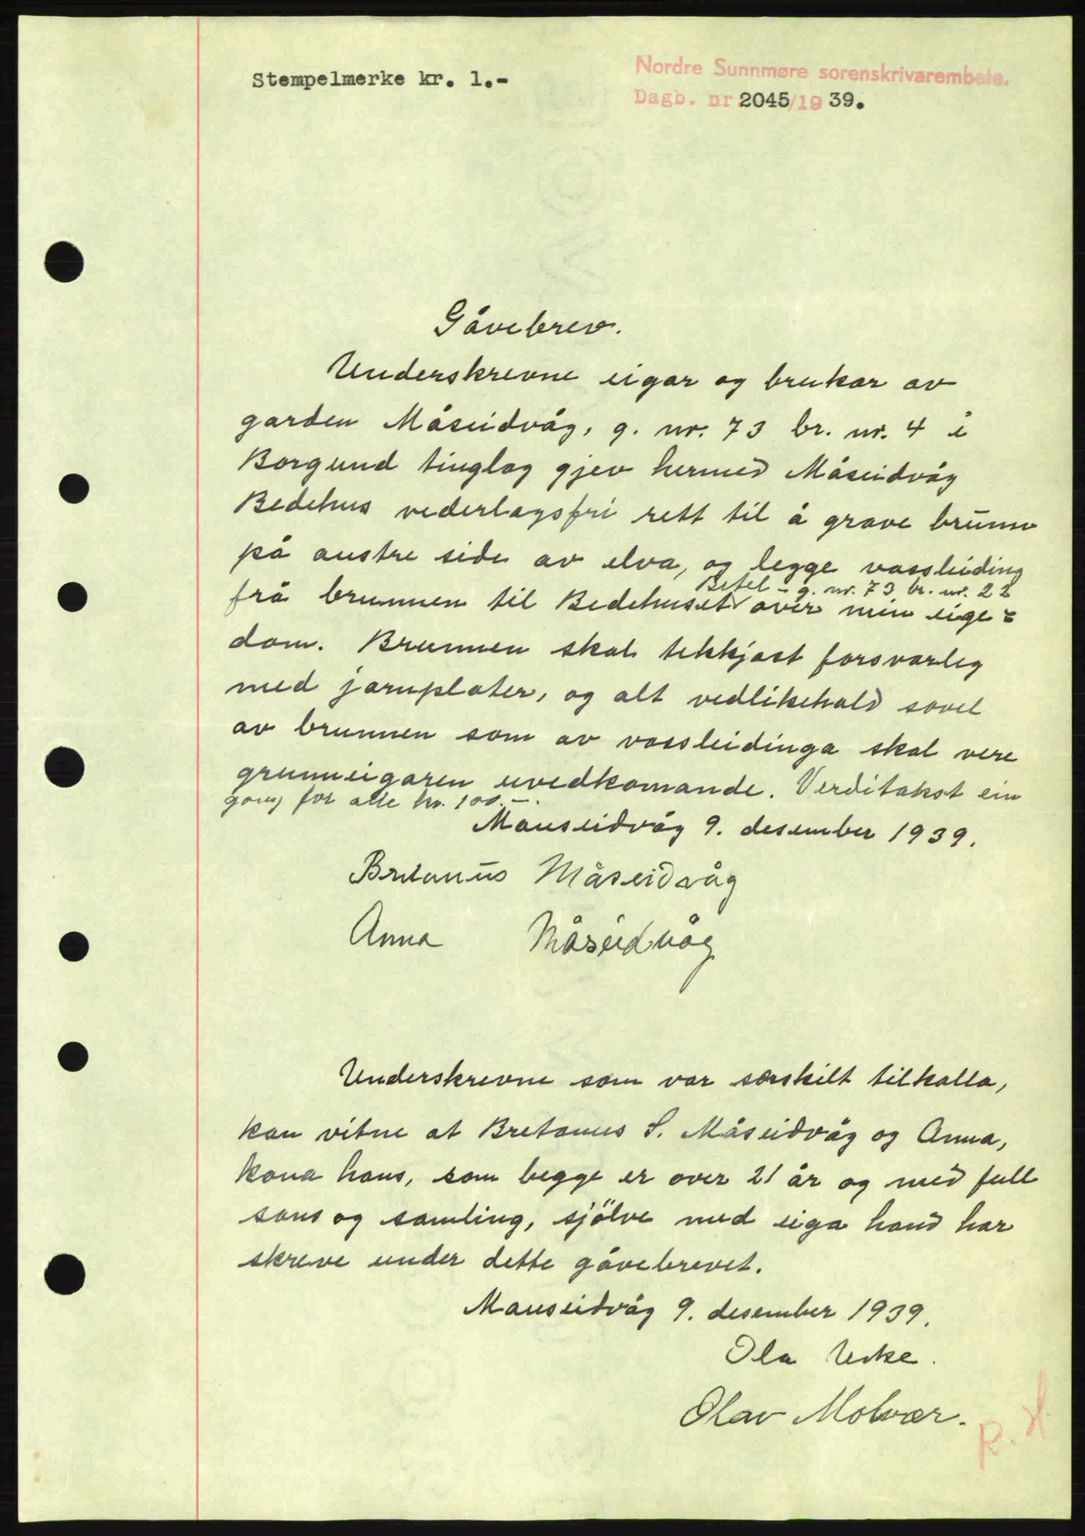 Stempelmerke kr. 1.-
Nordre Sunnmøre sorenskrivarembete.
Dagb. nr 2045/19 39.
Gåvebrev.
Underskrevne eigar og brukar av
garden Måseidvåg, g. nr. 73 br. nr. 4 i
Borgund tinglag gjev hermed Måseidvåg
Bedehus vederlagsfri rett til å grave brunn
på austre side av elva, og legge vassleiding
Betel - g. nr. 73 br. nr. 22
frå brunnen til Bedehuset √ over min eige=
dom. Brunnen skal tekkjast forsvarleg
med jarnplater, og alt vedlikehald sovel
av brunnen som av vassleidinga skal vere
grunneigaren uvedkomande. Verditakst ein
gong for alle kr. 100.-.
Mauseidvåg 9. desember 1939.
Bretanus Måseidvåg
Anna Måseidvåg
Underskrevne som var særskilt tilkalla,
kan vitne at Bretanus S. Måseidvåg og Anna,
kona hans, som begge er over 21 år og med full
sans og samling, sjölve med eiga hand har
skreve under dette gåvebrevet.
Mauseidvåg 9. desember 1939.
Ola Uske.
Olav Molvær.
R. H.